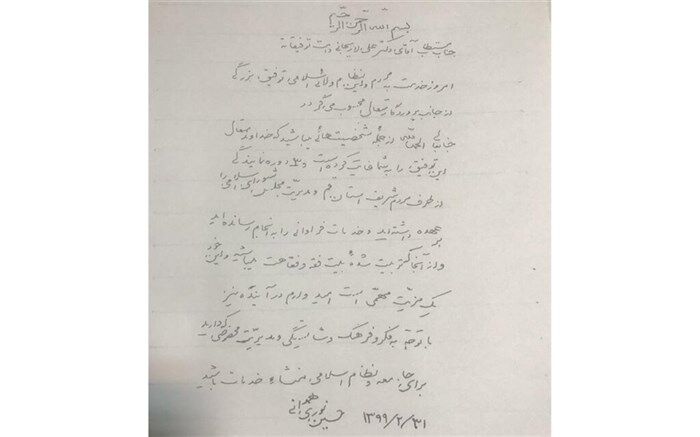 بسم الله الرحمن الرحیم
جناب مستطاب آقای دکتر علی لاریجانی دامت توفیقاته
امروز خدمت به مردم و این نظام والای اسلامی توفیق بزرگی
از جانب پروردگار متعال محسوب می‌گردد
جنابعالی الحمدلله از جمله شخصیت‌هائی میباشید که خداوند متعال
این توفیق را به شما عنایت کرده است و ۳ دوره نمایندگی
از طرف مردم شریف استان قم و مدیریت مجلس شورای اسلامی را
بر عهده داشته‌اید و خدمات فراوانی را به انجام رسانده‌اید
و از آنجا که تربیت شدهٔ بیت فقه و فقاهت میباشید و این خود
یک مزیّت مهمّی است امید وارم در آینده نیز
با توجّه به فکر و فرهنگ و شایستگی و مدیریّت که دارید
برای جامعه و نظام اسلامی، منشاء خدمات باشید
۱۳۹۹/۲/۳۱ حسین نوری همدانی